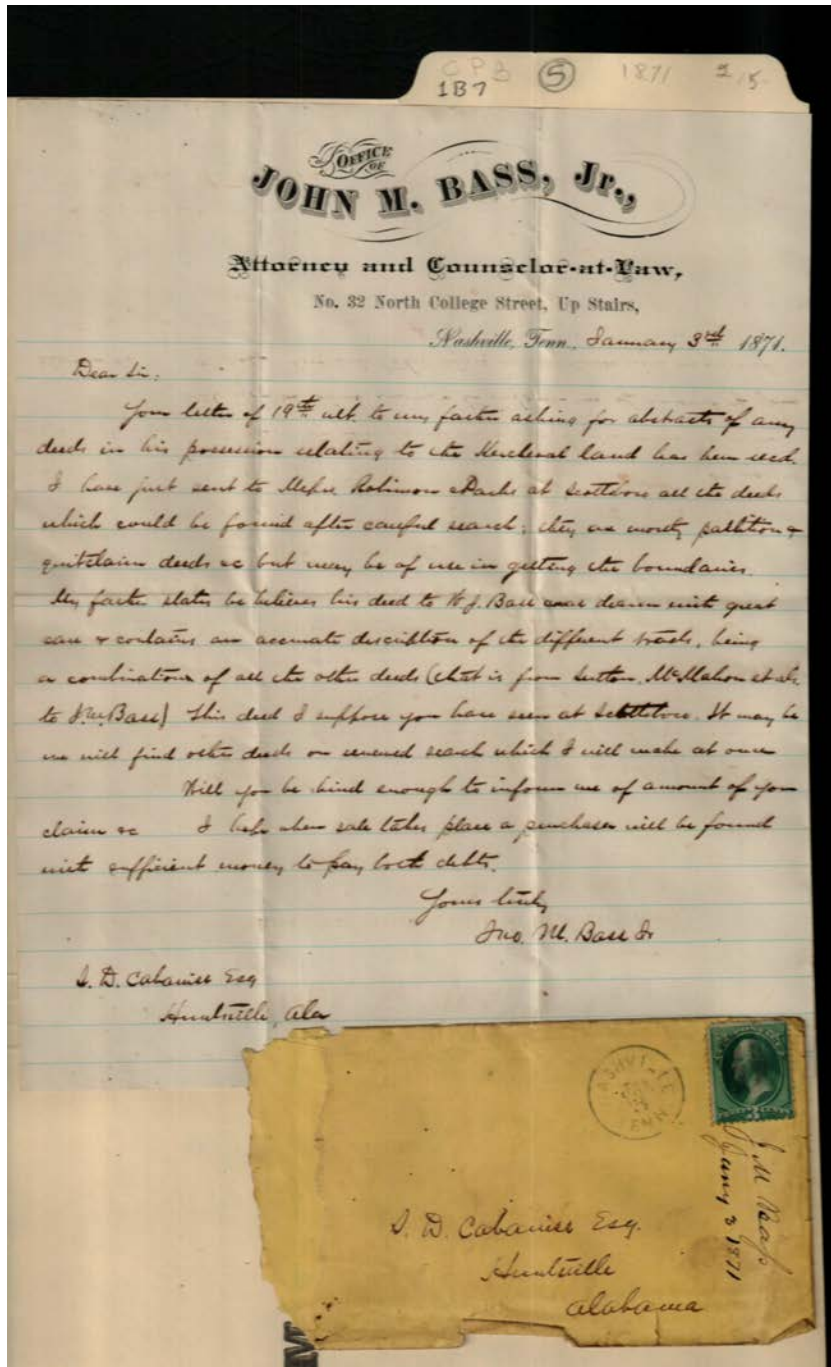 CPB 1B7 5 1871
OFFICE OF
JOHN M. BASS, Jr.,
Attorney and Counselor-at-Law,
No. 32 North College Street, Up Stairs,
Nashville, Tenn., January 3rd 1871.
Dear Sir:
Your letter of 19th ult. to my father asking for abstracts of any
deeds in his possession relating to the land has been recd.
I have just sent to Messrs Robinson & Parks at Scottsboro all the deeds
which could be found after careful search; they are mostly partition &
quitclaim deeds &c but may be of use in getting the boundaries.
My father states he believes his deed to W. J. Bass was drawn with great
care & contains an accurate description of the different tracts, being
a combination of all the other deeds (that is from Sutton, McMahon et als
to J. M. Bass) This deed I suppose you have seen at Scottsboro. It may be
we will find other deeds on renewed search which I will make at once
Will you be kind enough to inform me of amount of your
claim &c I hope when sale takes place a purchaser will be found
with sufficient money to pay both debts.
Yours truly
Jno. M. Bass Jr
S. D. Cabaniss Esq
Huntsville, Ala
ASHVILLE
TENN
J M Bass
Jany 3 1871
S. D. Cabaniss Esq.
Huntsville
Alabama